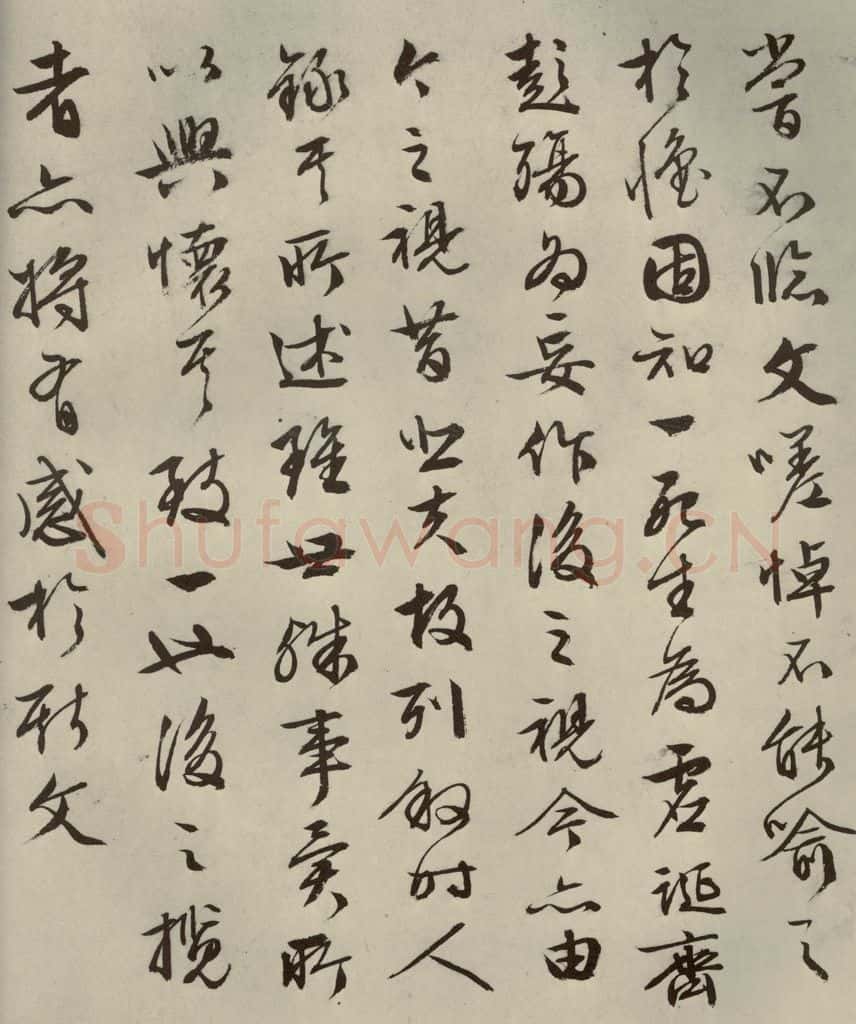 嘗不臨文嗟悼不能喻之
於懷固知一死生為虛誕齊
彭殤為妄作後之視今亦由
今之視昔悲夫故列敘時人
錄其所述雖世殊事異所
以興懷其致一也後之攬
者亦將有感於斯文
Shufawang.CN